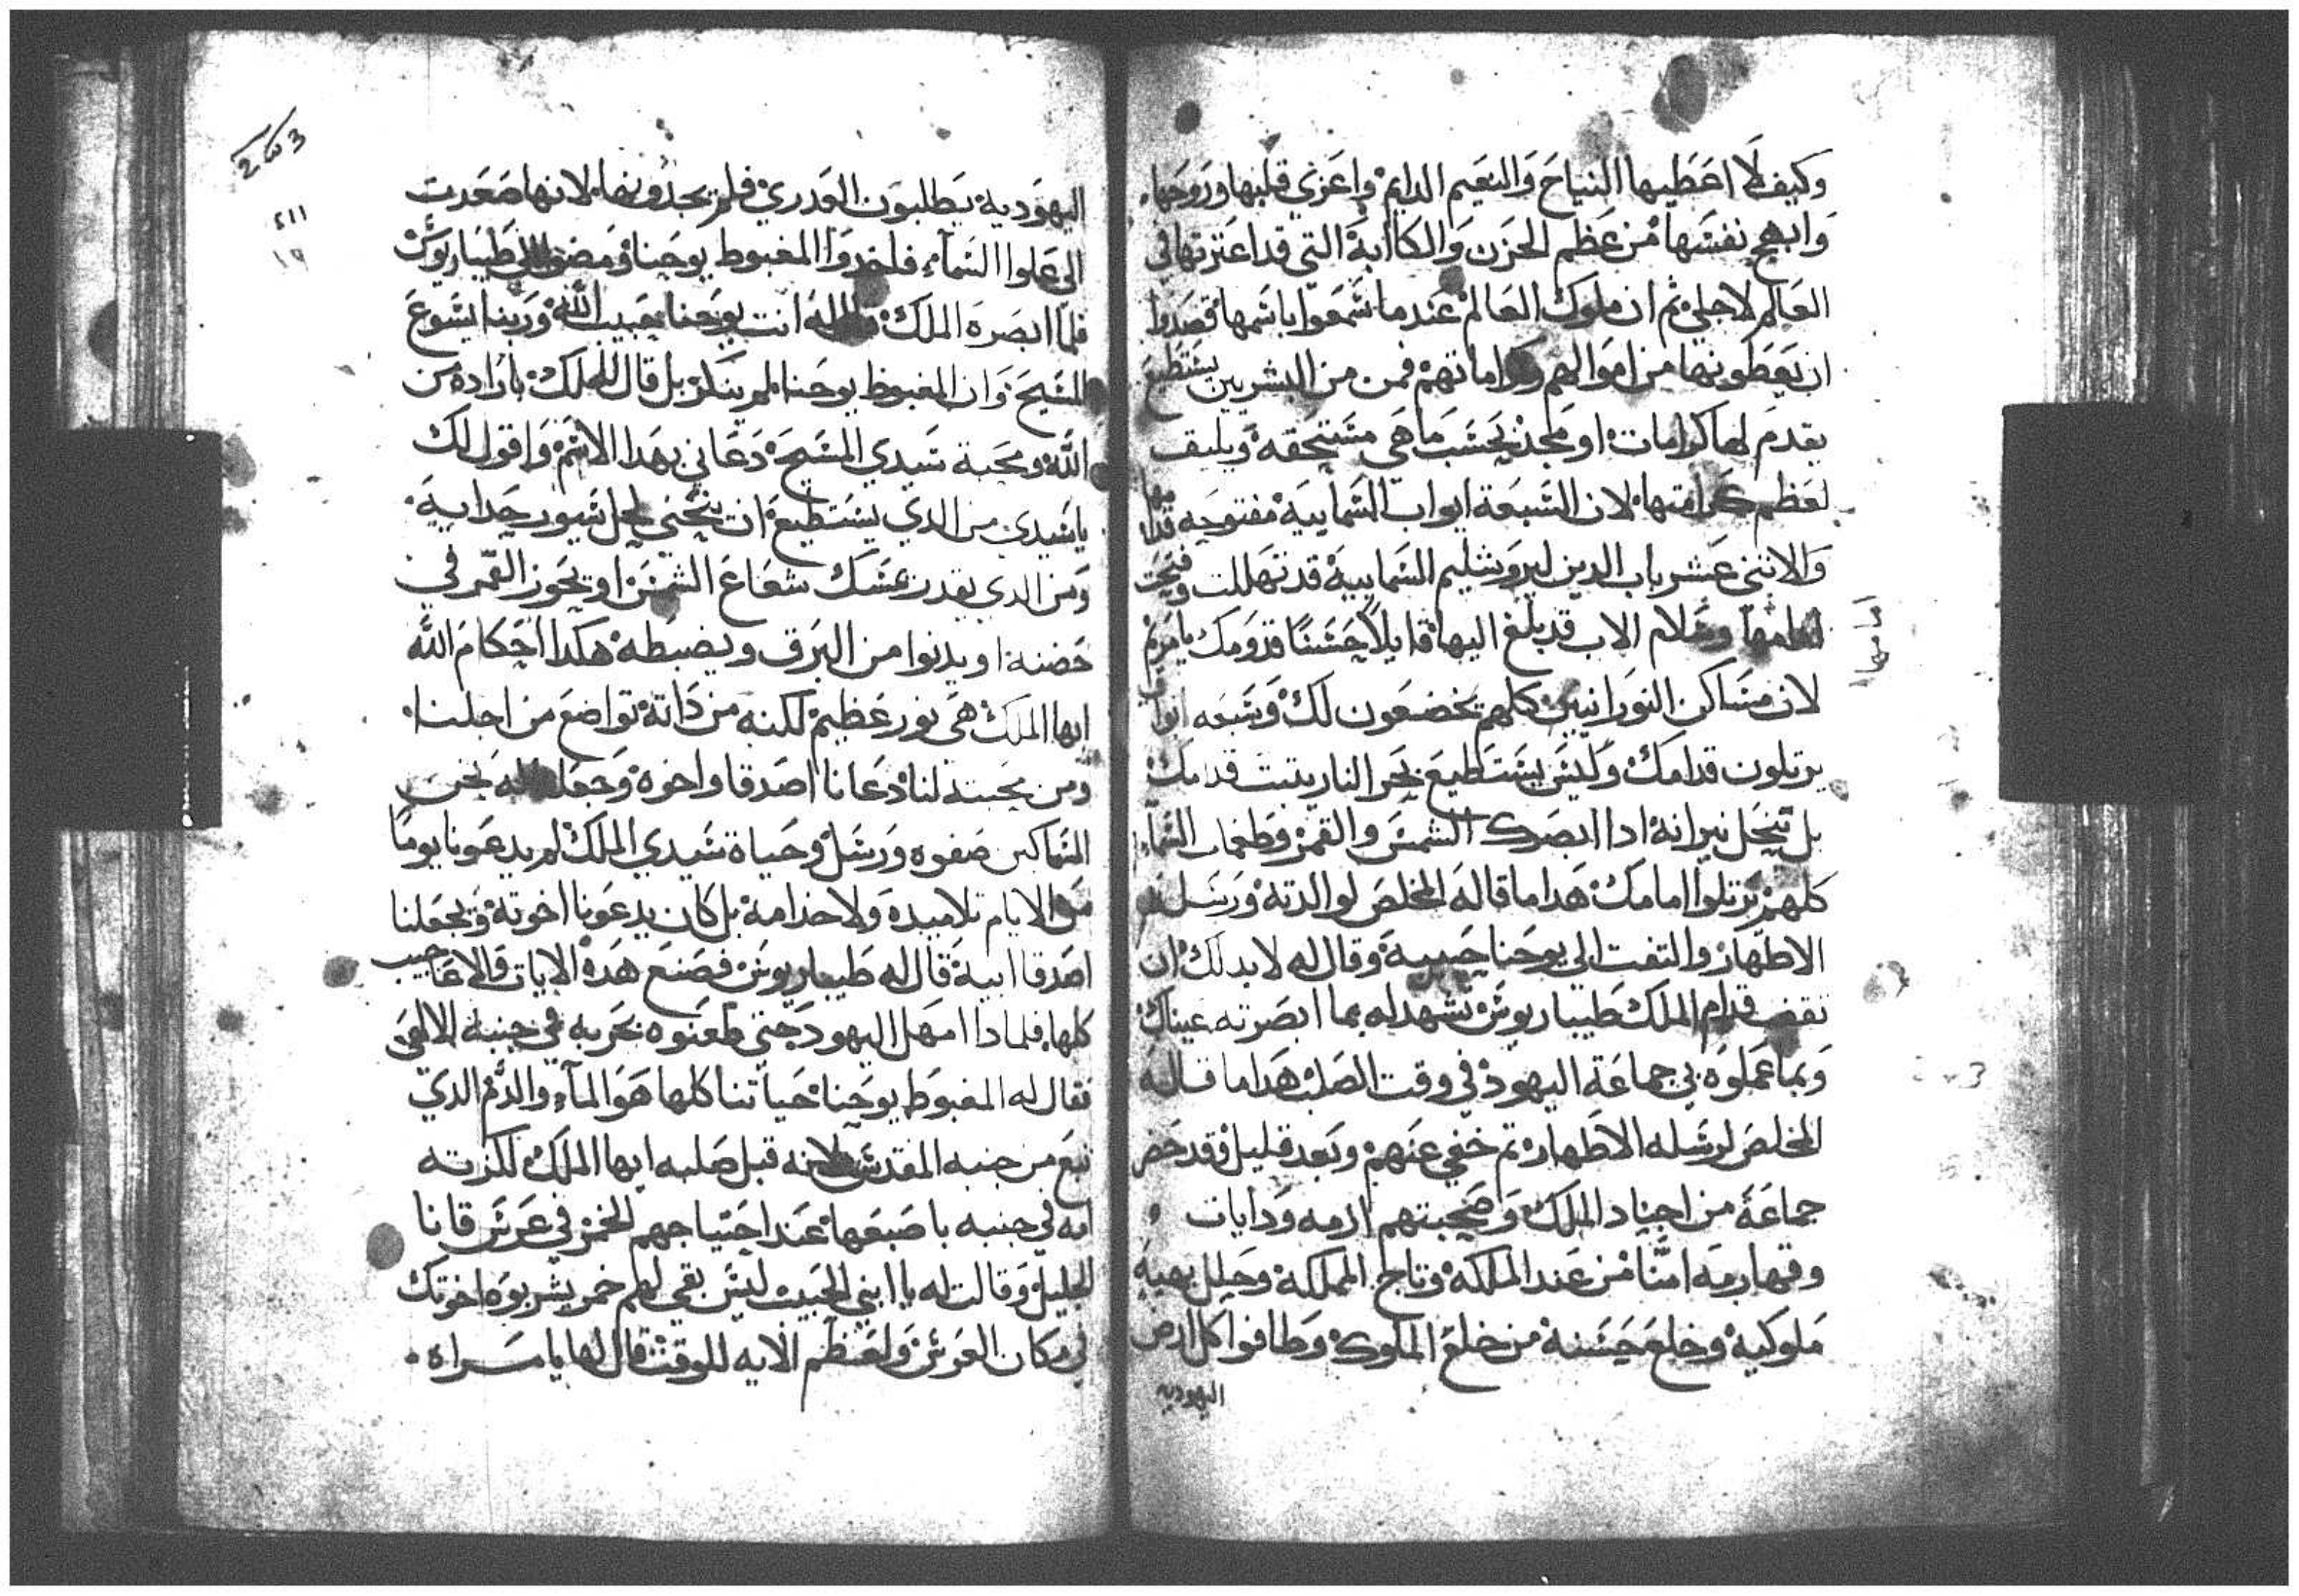 وكيف لا اعطيها النياح والنعيم الدايم واعزي قلبها وروحها
وابهج نفسها من عظم الحزن والكاابة التي قد اعترتها في
العالم لاجلي ثم ان ملوك العالم عندما سمعوا باسمها قصدوا
ان يعطونها من اموالهم وكراماتهم فمن من البشريين يستطيع
يقدم لها كرامات او مجد بحسب ما هي مستحقه ويليق
لعظم كرامتها لان السبعة ابواب السماييه مفتوحه قدامها
والاتني عشر باب الدين ليروشليم السماييه قد تهللت وفتحت
امامها وسلام الاب قد بلغ اليها قايلا حسنا قدومك يا مريم
امامها
لان مساكن النورانيين كلهم يخضعون لك وسبعه ابواب
يرتلون قدامك وليس يستطيع بحر النار يتبت قدامك
بل تنحل نيرانه ادا ابصرك الشمس والقمر وطغمات السماء
كلهم يرتلوا امامك هدا ما قاله المخلص لوالدته ورسله
الاطهار والتفت الي يوحنا حبيبه وقال له لا بد لك ان
تقف قدام الملك طيباريوس تشهد له بما ابصرته عيناك
وبما عملوه بي جماعة اليهود في وقت الصلب هدا ما قاله
المخلص لرسله الاطهار تم خفي عنهم وبعد قليل وقد حضر
جماعة من اجناد الملك وصحبتهم ازمه ودايات
وقهارمه امنا من عند الملكه وتاج المملكة وحلل بهيه
ملوكيه وخلع حسنه من خلع الملوك وطافوا كل ارض
اليهوديه
اليهودية يطلبون العدري فلم يجدونها لانها صعدت
الي علوا السماء فاخدوا المغبوط يوحنا ومضوا الي طيباريوس
فلما ابصره الملك قال له انت يوحنا حبيب الله وربنا ايسوع
المسيح وان المغبوط يوحنا لم ينكر بل قال للملك بارادة من
الله ومحبة سيدي المسيح دعاني بهدا الاسم واقول لك
يا سيدي من الدي يستطيع ان ينحني لحل سيور حدايه
ومن الدي يقدر يمسك شعاع الشمس او يحوز القمر في
حضنه او يدنوا من البرق ويضبطه هكدا احكام الله
ايها الملك هي نور عظيم لكنه من داته تواضع من اجلنا
ومن محبته لنا دعانا اصدقا واخوة وجعلنا له نحن
المساكين صفوه ورسل وحياة سيدي الملك لم يدعونا يوما
من الايام تلاميده ولا خدامه بل كان يدعونا اخوته ويجعلنا
اصدقا ابيه قال له طيباريوس فصنع هده الايات والاعاجيب
كلها فلمادا امهل اليهود حتي طعنوه بحربه في جنبه الالهي
فقال له المغبوط يوحنا حياتنا كلها هو الماء والدم الدي
نبع من جنبه المقدس لانه قبل صلبه ايها الملك لكزته
امه في جنبه باصبعها عند احتياجهم الخمر في عرس قانا
الجليل وقالت له يا ابني الحبيب ليس بقي لهم خمر يشربوه اخوتك
في مكان العرس ولعظم الايه للوقت قال لها يا مراه
٤١١
١٩